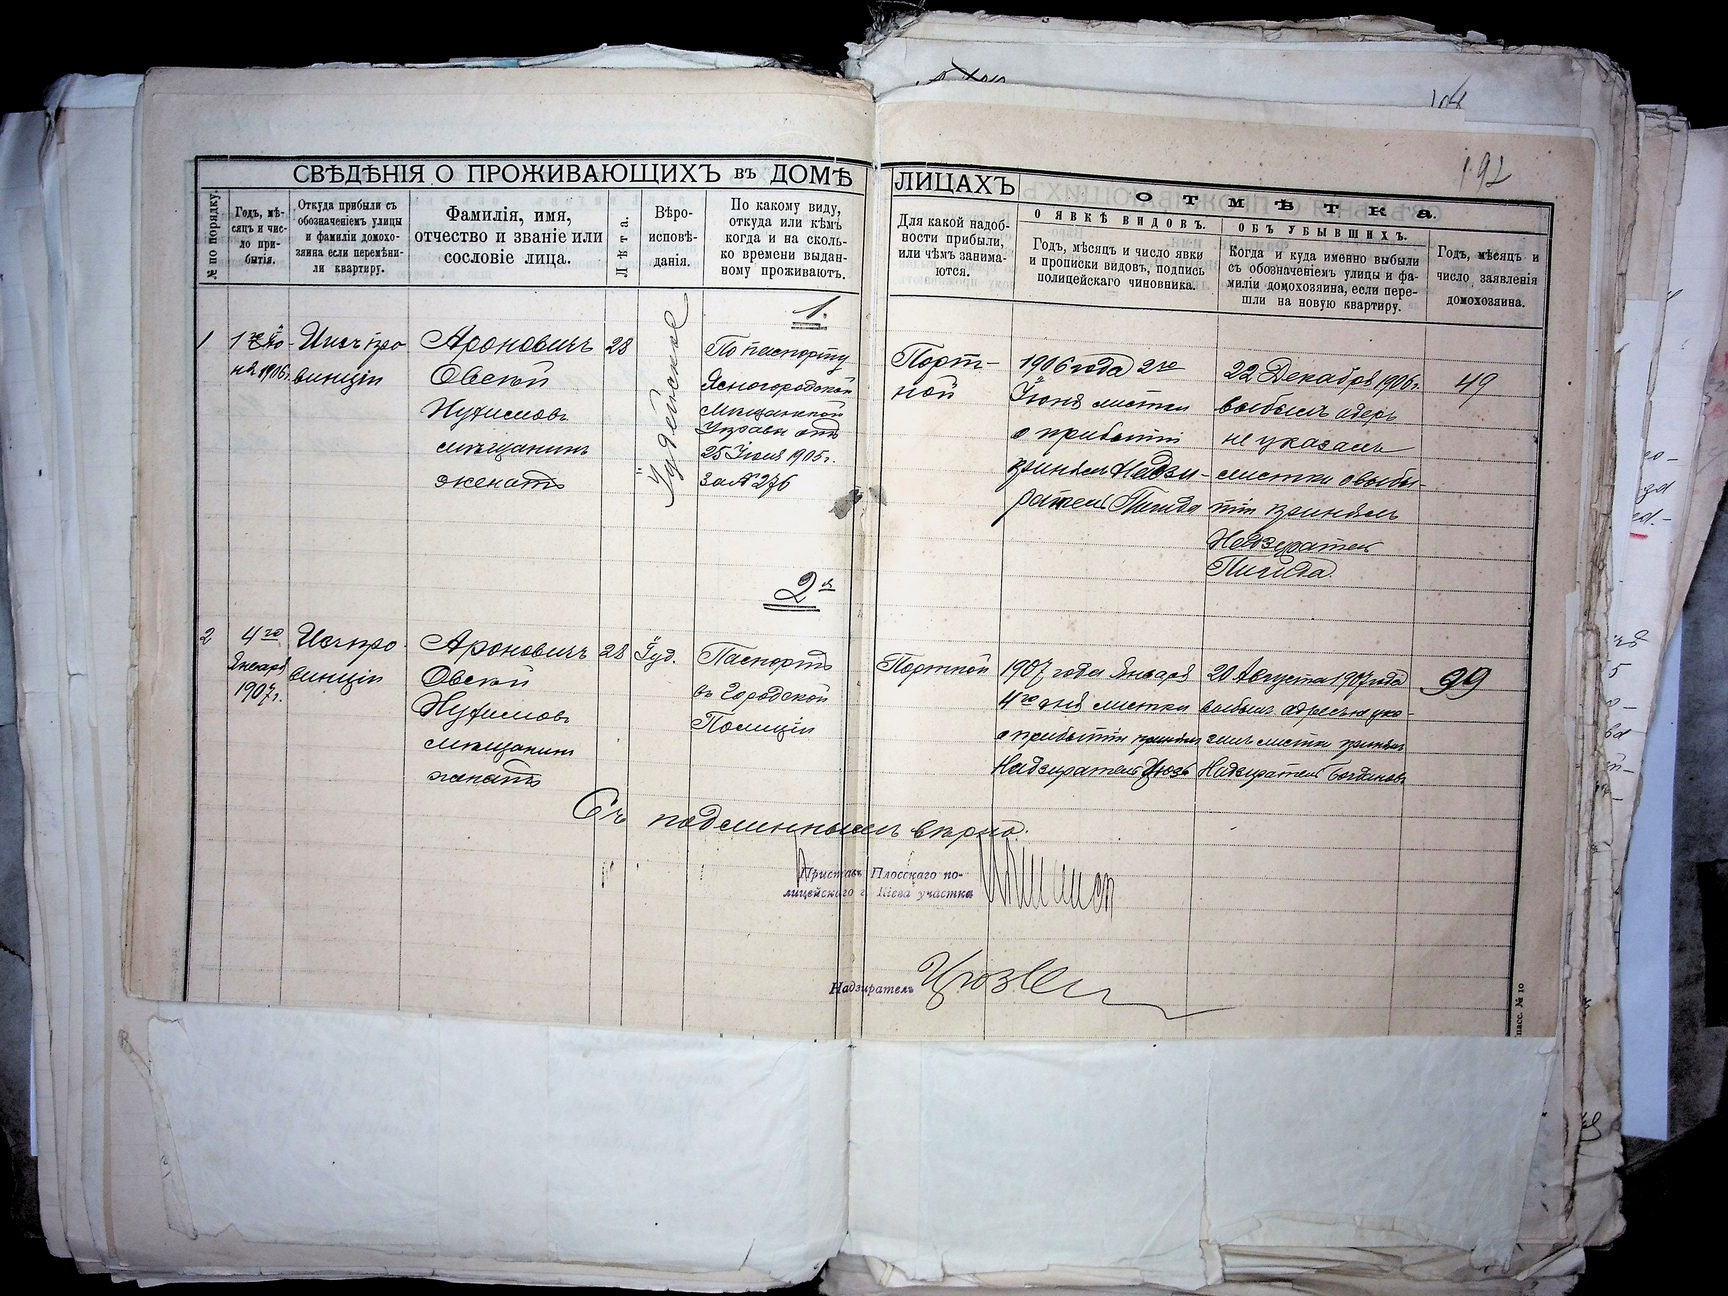 192
СВѢДѢНІЯ О ПРОЖИВАЮЩИХЪ въ ДОМѢ ЛИЦАХЪ
О т м ѣ т к а.
О ЯВКѢ ВИДОВЪ.
ОБЪ УБЫВШИХЪ.
№ по порядку.
Годъ, мѣ-
сяцъ и чис-
ло при-
бытія.
Откуда прибыли съ
обозначеніемъ улицы
и фамиліи домохо-
зяина если перемѣни-
ли квартиру.
Фамилія, имя,
отчество и званіе или
сословіе лица.
Лѣта.
Вѣро-
исповѣ-
данія.
По какому виду,
откуда или кѣмъ
когда и на сколь-
ко времени выдан-
ному проживаютъ.
Для какой надоб-
ности прибыли,
или чѣмъ занима-
ются.
Годъ, мѣсяцъ и число явки
и прописки видовъ, подпись
полицейскаго чиновника.
Когда и куда именно выбыли
съ обозначеніемъ улицы и фа-
миліи домохозяина, если пере-
шли на новую квартиру.
Годъ, мѣсяцъ и
число заявленія
домохозяина.
1.
1
1 го Iю-
ня 1906г.
Изъ про-
винціи
Ароновичъ
Овсѣй
Нухимовъ
мѣщанинъ
женатъ
28
Iудейское
По паспорту
Ясногородской
Мѣщанской
Управы отъ
25 Iюля 1905г.
за № 276
Порт-
ной
1906 года 2го
Iюня листки
о прибытіи
принялъ Надзи-
ратель Пигида
22 Декабря 1906г.
выбылъ адресъ
не указалъ
листки о выбы-
тіи принялъ
Надзиратель
Пигида.
49
2й
2
4го
Января
1907г.
Изъ про-
винціи
Ароновичъ
Овсѣй
Нухимовъ
мѣщанинъ
женатъ
28
Iуд.
Паспортъ
въ Городской
Полиціи
Портной
1907 года Января
4го дня листки
о прибытіи принялъ
Надзиратель Цюзь
20 Августа 1907 года
выбылъ адресъ не ука-
залъ листки принялъ
Надзиратель Богдановъ
99
Съ подлиннымъ вѣрно:
Приставъ Плосскаго по-
лицейскаго г. Кіева участка
Надзиратель